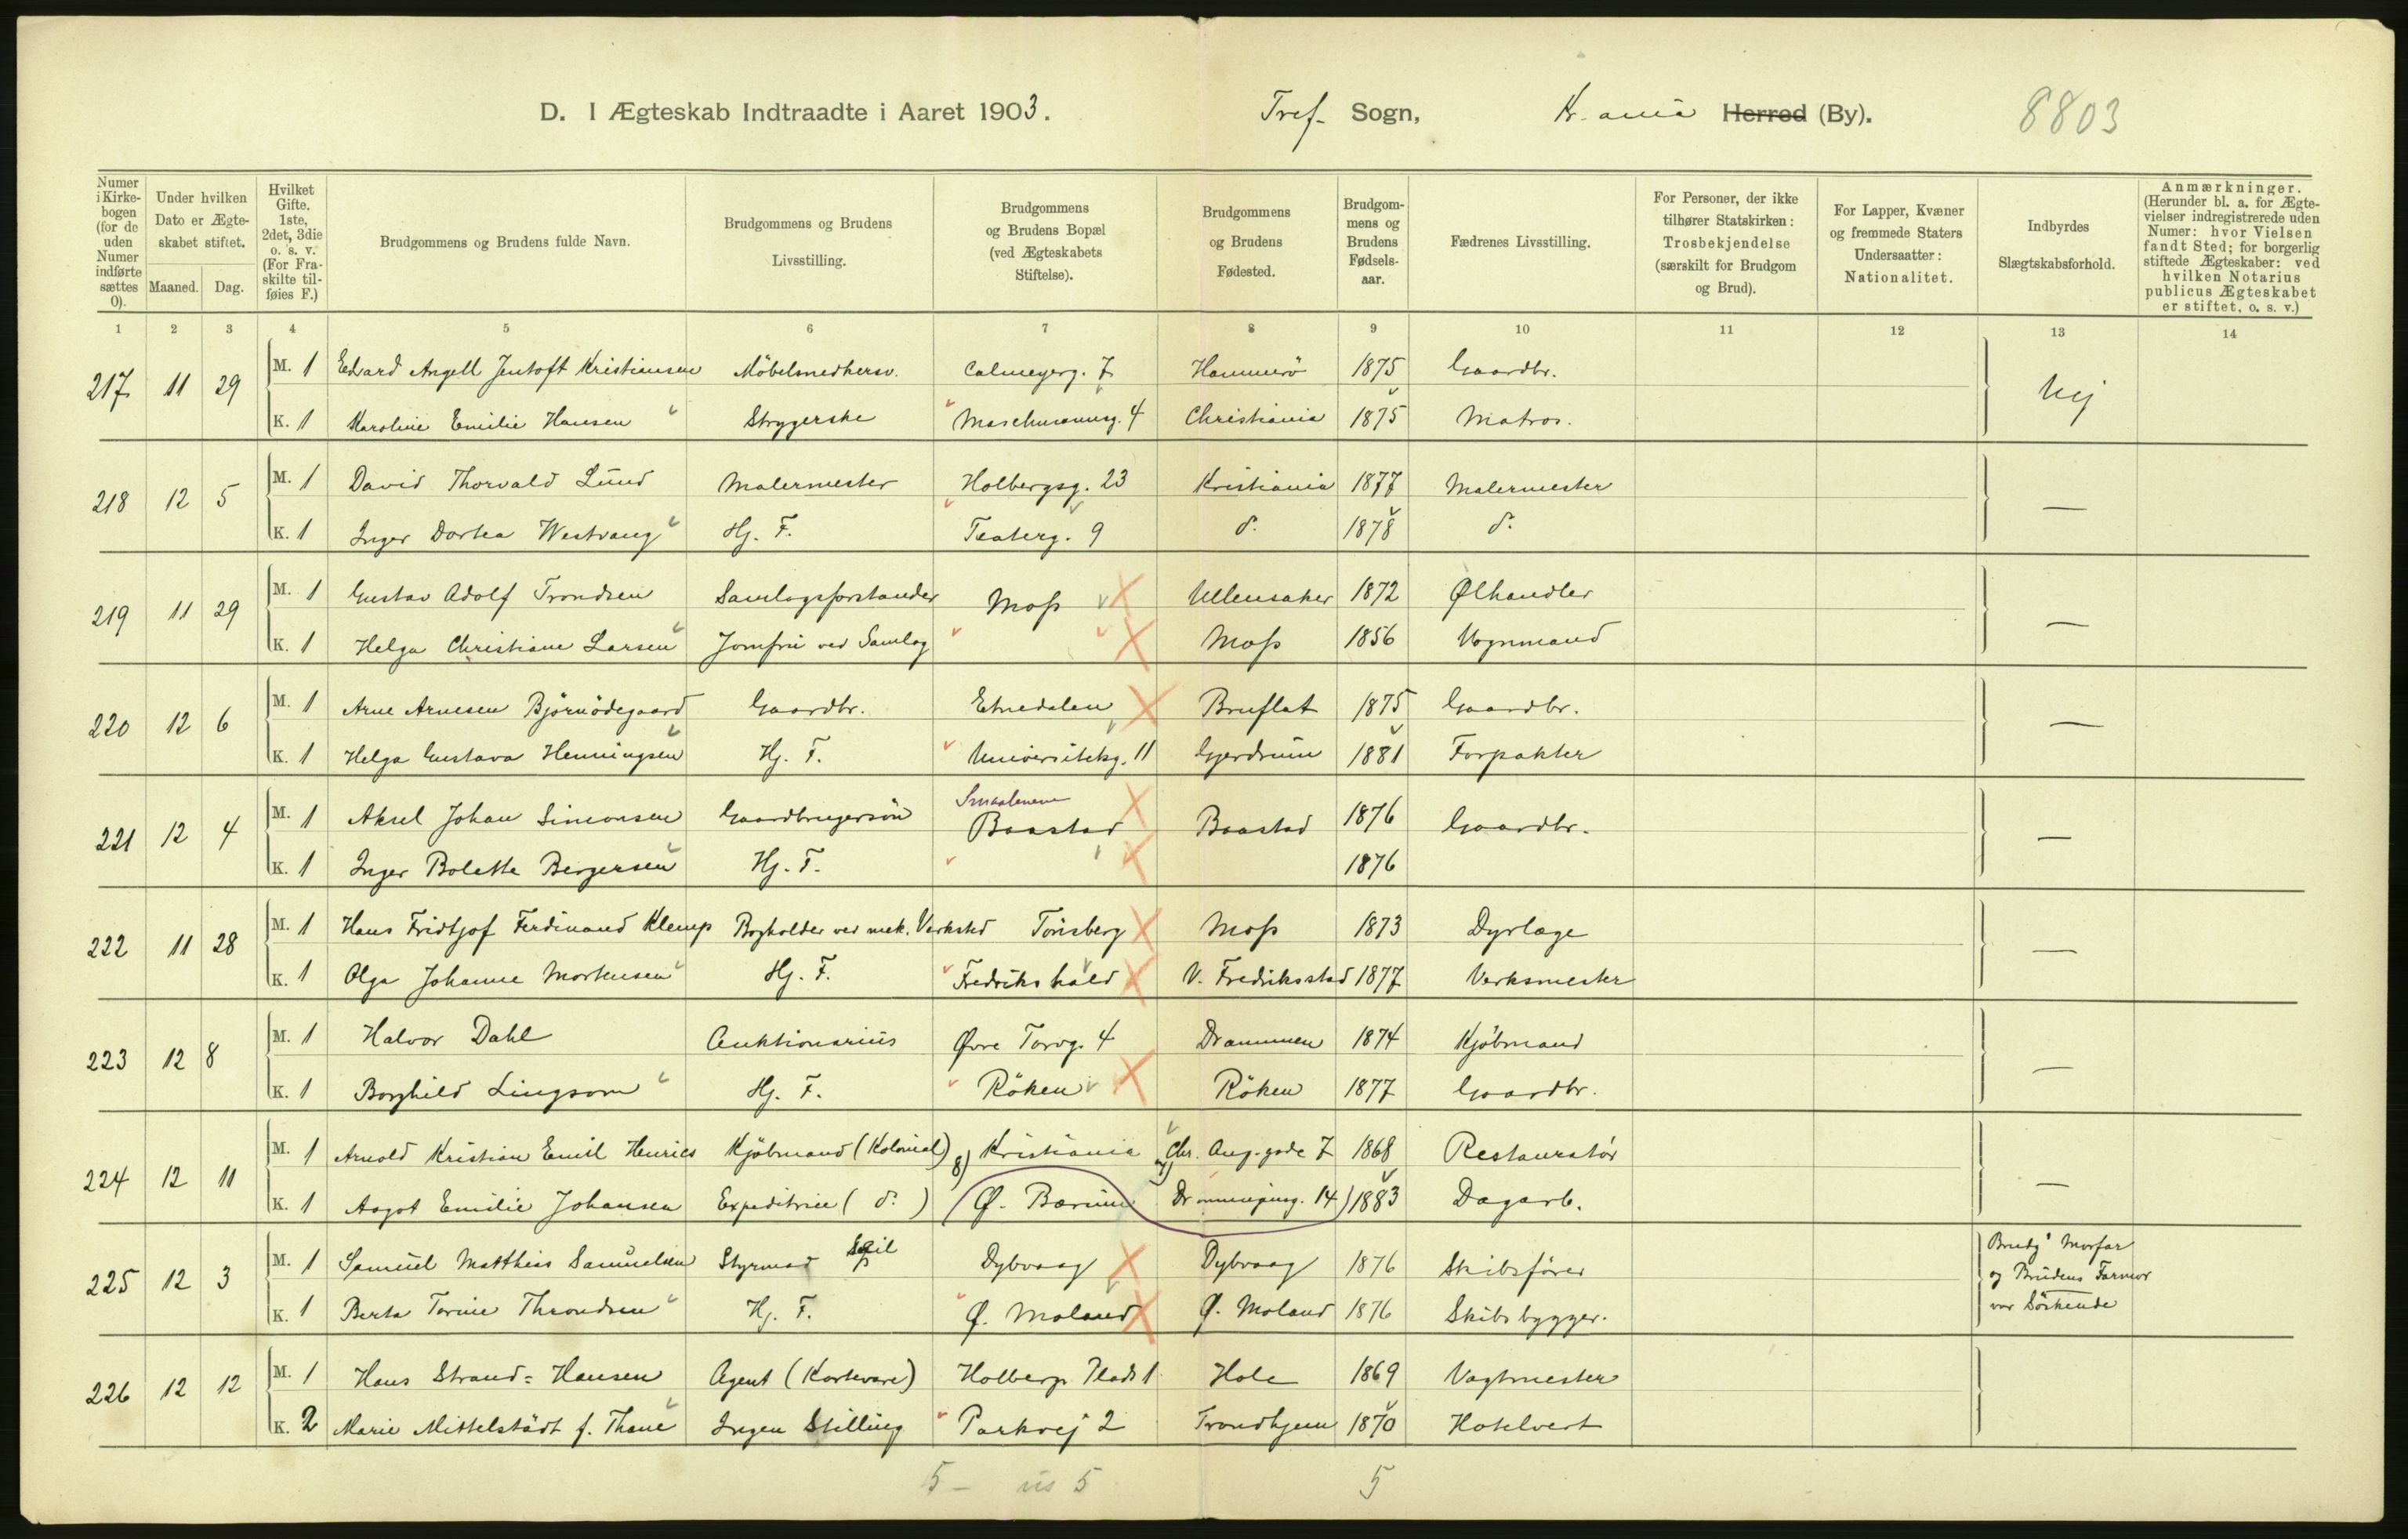 D. I Ægteskab Indtraadte i Aaret 1903. Tref- Sogn, Kr.ania Herred (By). 8803
Numer i Kirkebogen (for de uden Numer indførte sættes 0).
Under hvilken Dato er Ægteskabet stiftet.
Maaned. Dag.
Hvilket Gifte. 1ste, 2det, 3die o. s. v. (For Fraskilte tilføies F.)
Brudgommens og Brudens fulde Navn.
Brudgommens og Brudens Livsstilling.
Brudgommens og Brudens Bopæl (ved Ægteskabets Stiftelse).
Brudgommens og Brudens Fødested.
Brudgommens og Brudens Fødselsaar.
Fædrenes Livsstilling.
For Personer, der ikke tilhører Statskirken: Trosbekjendelse (særskilt for Brudgom og Brud).
For Lapper, Kvæner og fremmede Staters Undersaatter: Nationalitet.
Indbyrdes Slægtskabsforhold.
Anmærkninger. (Herunder bl. a. for Ægtevielser indregistrerede uden Numer: hvor Vielsen fandt Sted; for borgerlig stiftede Ægteskaber: ved hvilken Notarius publicus Ægteskabet er stiftet, o. s. v.)
1 2 3 4 5 6 7 8 9 10 11 12 13 14
217 11 29 M. 1 Edvard Angell Jentoft Kristiansen Möbelsnedkersv. Calmeyerg. 7 Hammerö 1875 Gaardbr. Nej
K. 1 Karoline Emilie Hansen Strygerske Maschmanng. 4 Christiania 1875 Matros.
218 12 5 M. 1 David Thorvald Lund Malermester Holbergsg. 23 Kristiania 1877 Malermester —
K. 1 Inger Dortea Westvang Hj. F. Teaterg. 9 d. 1878 d.
219 11 29 M. 1 Gustav Adolf Trondsen Samlagsforstander Moss Ullensaker 1872 Ølhandler —
K. 1 Helga Christiane Larsen Jomfru ved Samlag Moss 1856 Vognmand
220 12 6 M. 1 Arne Arnesen Björnödegaard Gaardbr. Etnedalen Bruflat 1875 Gaardbr. —
K. 1 Helga Gustava Henningsen Hj. F. Universitetsg. 11 Gjerdrum 1881 Forpakter
221 12 4 M. 1 Aksel Johan Simonsen Gaardbrugersön Smaalenene Baastad Baastad 1876 Gaardbr. —
K. 1 Inger Bolette Bergersen Hj. F. 1876
222 11 28 M. 1 Hans Fridtjof Ferdinand Klemp Bogholder ved mek. Verksted Tönsberg Moss 1873 Dyrlæge —
K. 1 Olga Johanne Mortensen Hj. F. Fredrikshald V. Fredriksstad 1877 Verksmester
223 12 8 M. 1 Halvor Dahl Auktionarius Øvre Torvg. 4 Drammen 1874 Kjöbmand —
K. 1 Borghild Lingsom Hj. F. Röken Röken 1877 Gaardbr.
224 12 11 M. 1 Arnold Kristian Emil Henrics Kjöbmand (Kolonial) 8) Kristiania Chr. Aug-gade 7 1868 Restauratör —
K. 1 Aagot Emilie Johansen Expeditrice ( d. ) (Ø. Bærum Dronningensg. 14) 1883 Dagarb.
225 12 3 M. 1 Samuel Matthias Samuelsen Styrmad Seil Dybvaag Dybvaag 1876 Skibsförer Brudg' Morfar
og Brudens Farmor
K. 1 Berta Torine Throndsen Hj. F. Ø. Moland Ø. Moland 1876 Skibsbygger. var Söskende
226 12 12 M. 1 Hans Strand-Hansen Agent (Kortevare) Holbergs Plads 1 Hole 1869 Vagtmester
K. 2 Marie Mittelstädt f. Thane Ingen Stilling Parkvej 2 Trondhjem 1870 Hotelvert
5 - us 5 5